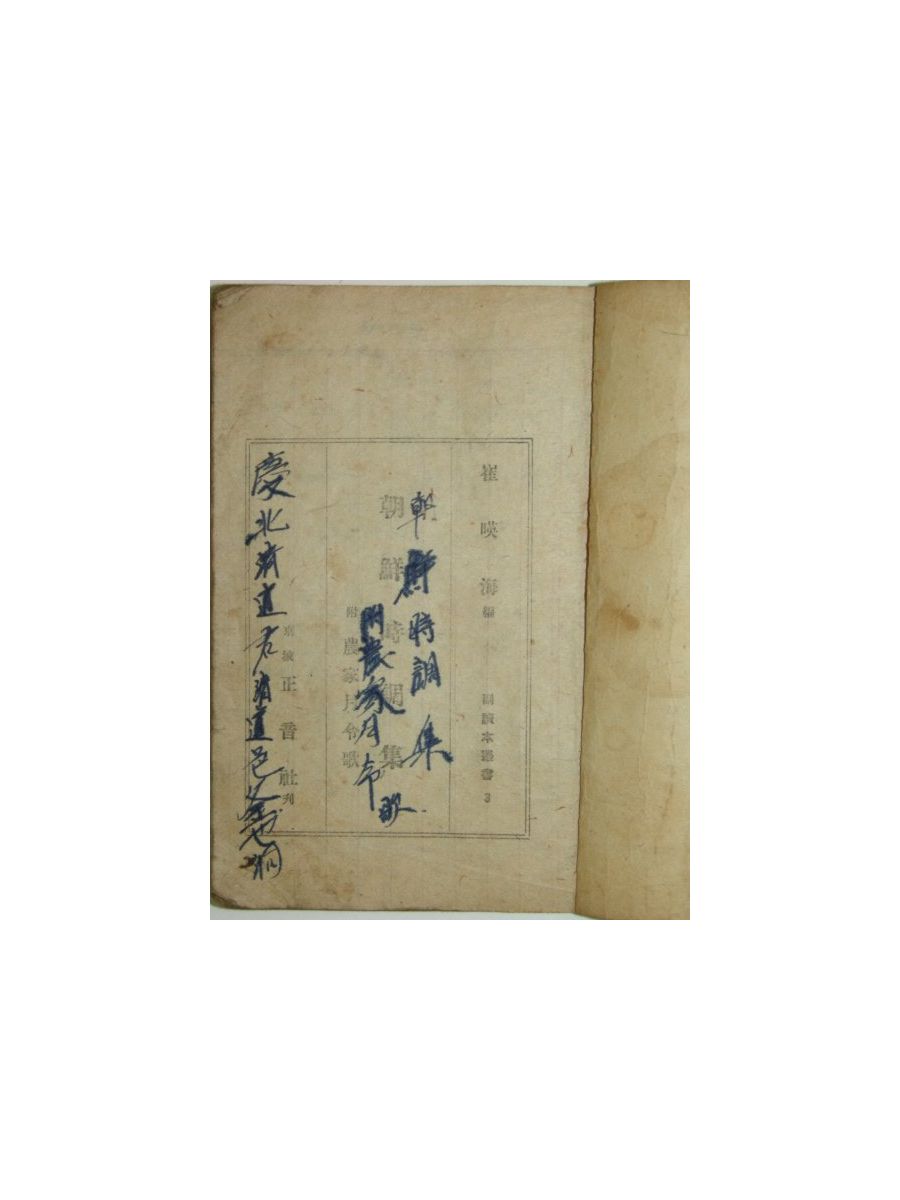 崔暎海編
副讀本叢書 3
朝鮮時調集
朝鮮時調集
附 農家月令歌
附農家月令歌
京城 正音社刊
慶北淸道君淸道邑
洞